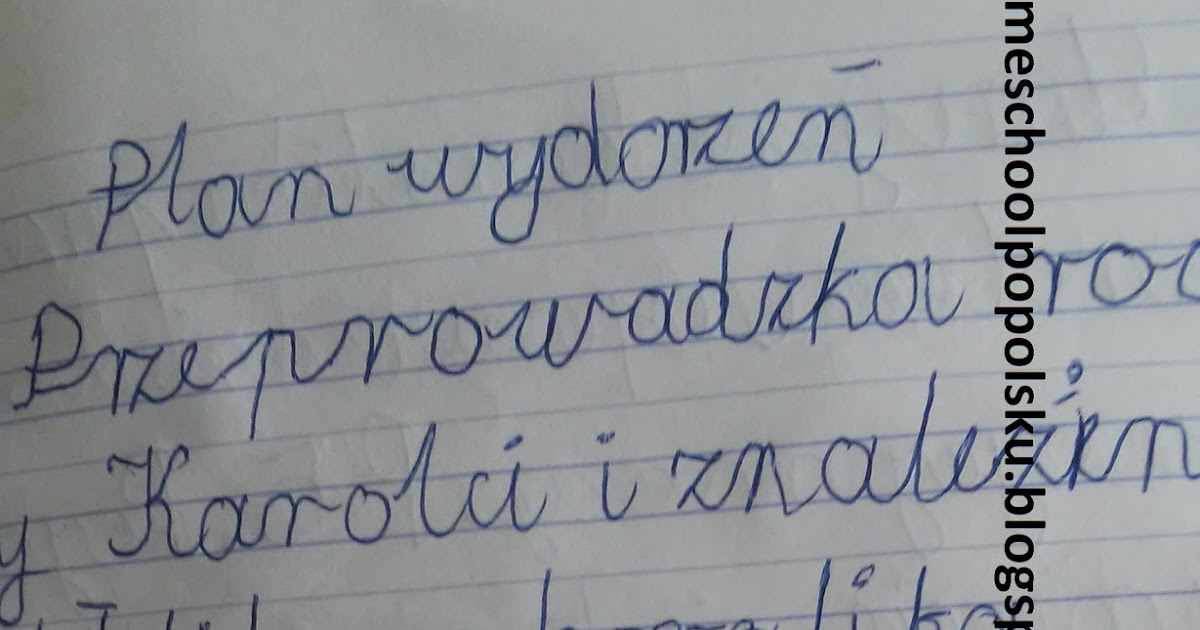 Plan wydorzeń
Przeprowadzka ro
y Karoli i znaleźien
meschoolpopopolsku.blogsp